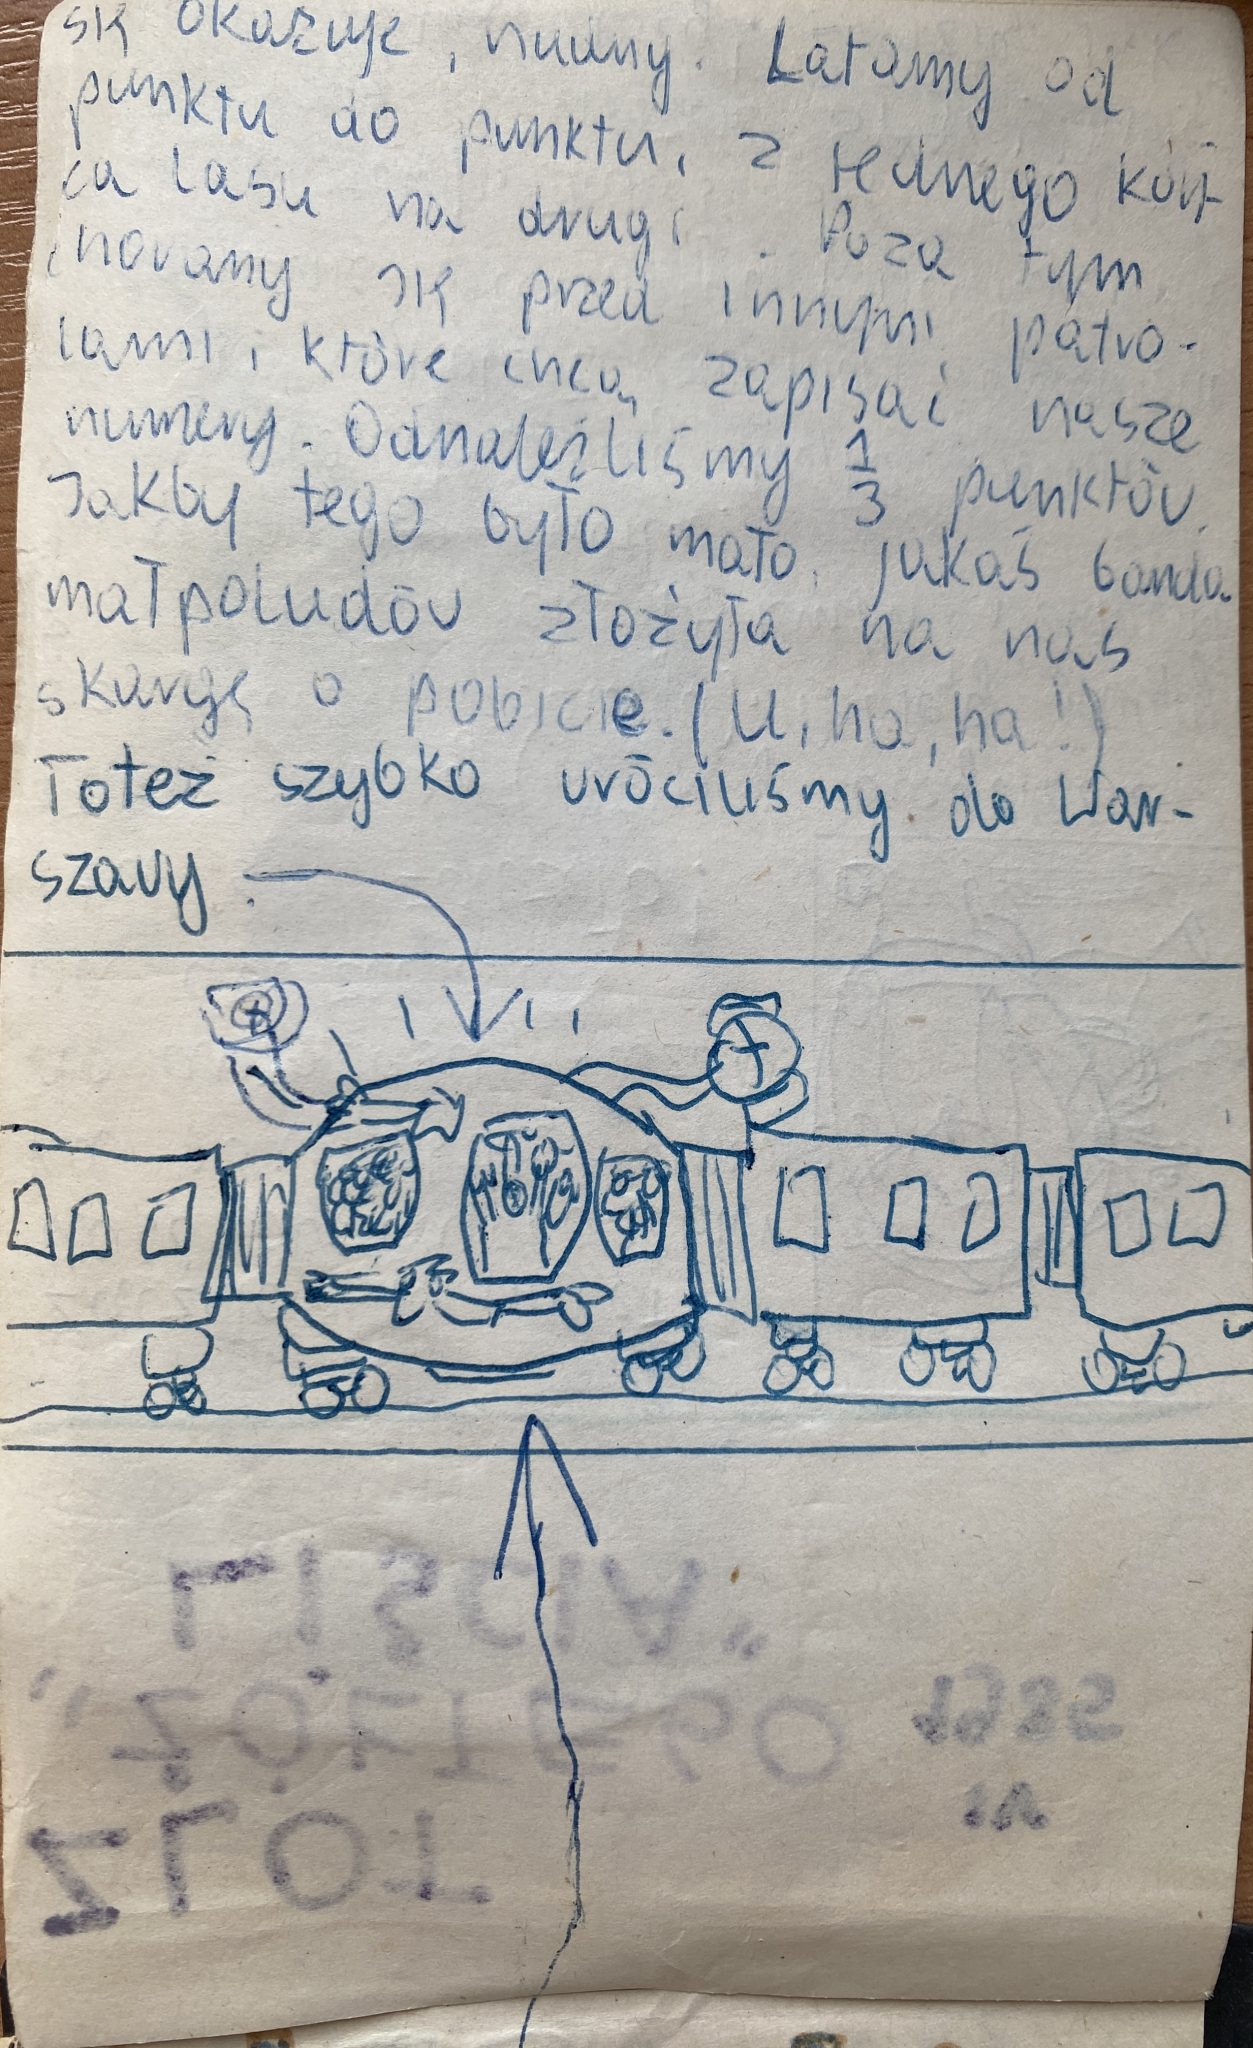 się okazuje, nudny. Latamy od
punktu do punktu, z jednego koń-
ca lasu na drugi. Poza tym
chowamy się przed innymi patro-
lami, które chcą zapisać nasze
numery. Odnaleźliśmy 1/3 punktów.
Jakby tego było mało, jakaś banda
małpoludów złożyła na nas
skargę o pobicie. (U, ha, ha!)
Toteż szybko wróciliśmy do War-
szawy.
LIŚCIA”
„ŻÓŁTEGO
ZLOT
1985